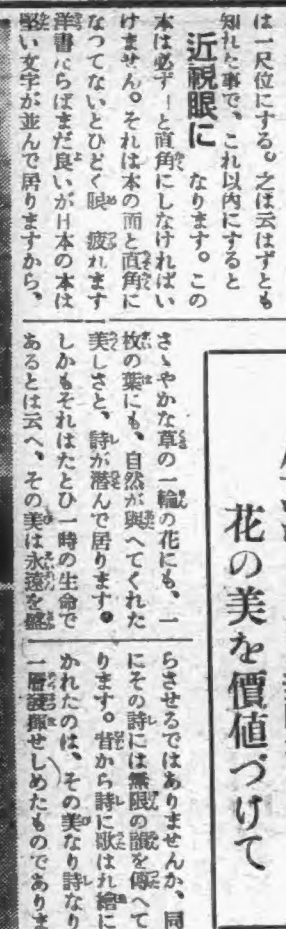 は一尺位にする。之は云はずとも
知れた事で、これ以内にすると
近視眼に なります。この
本は必ず！と直角にしなければい
けません。それは本の面と直角に
なつてないとひどく眼 疲れます
洋書ならばまだ良いが日本の本は
堅い文字が並んで居りますから、
花の美を價値づけて
さゝやかな草の一輪の花にも、一
枚の葉にも、自然が與へてくれた
美しさと、詩が潜んで居ります。
しかもそれはたとひ一時の生命で
あるとは云へ、その美は永遠を
らさせるではありませんか、同
にその詩には無限の韻を傳へて
ります。昔から詩に歌はれ繪に
かれたのは、その美なり詩なり
一層發揮せしめたものでありま